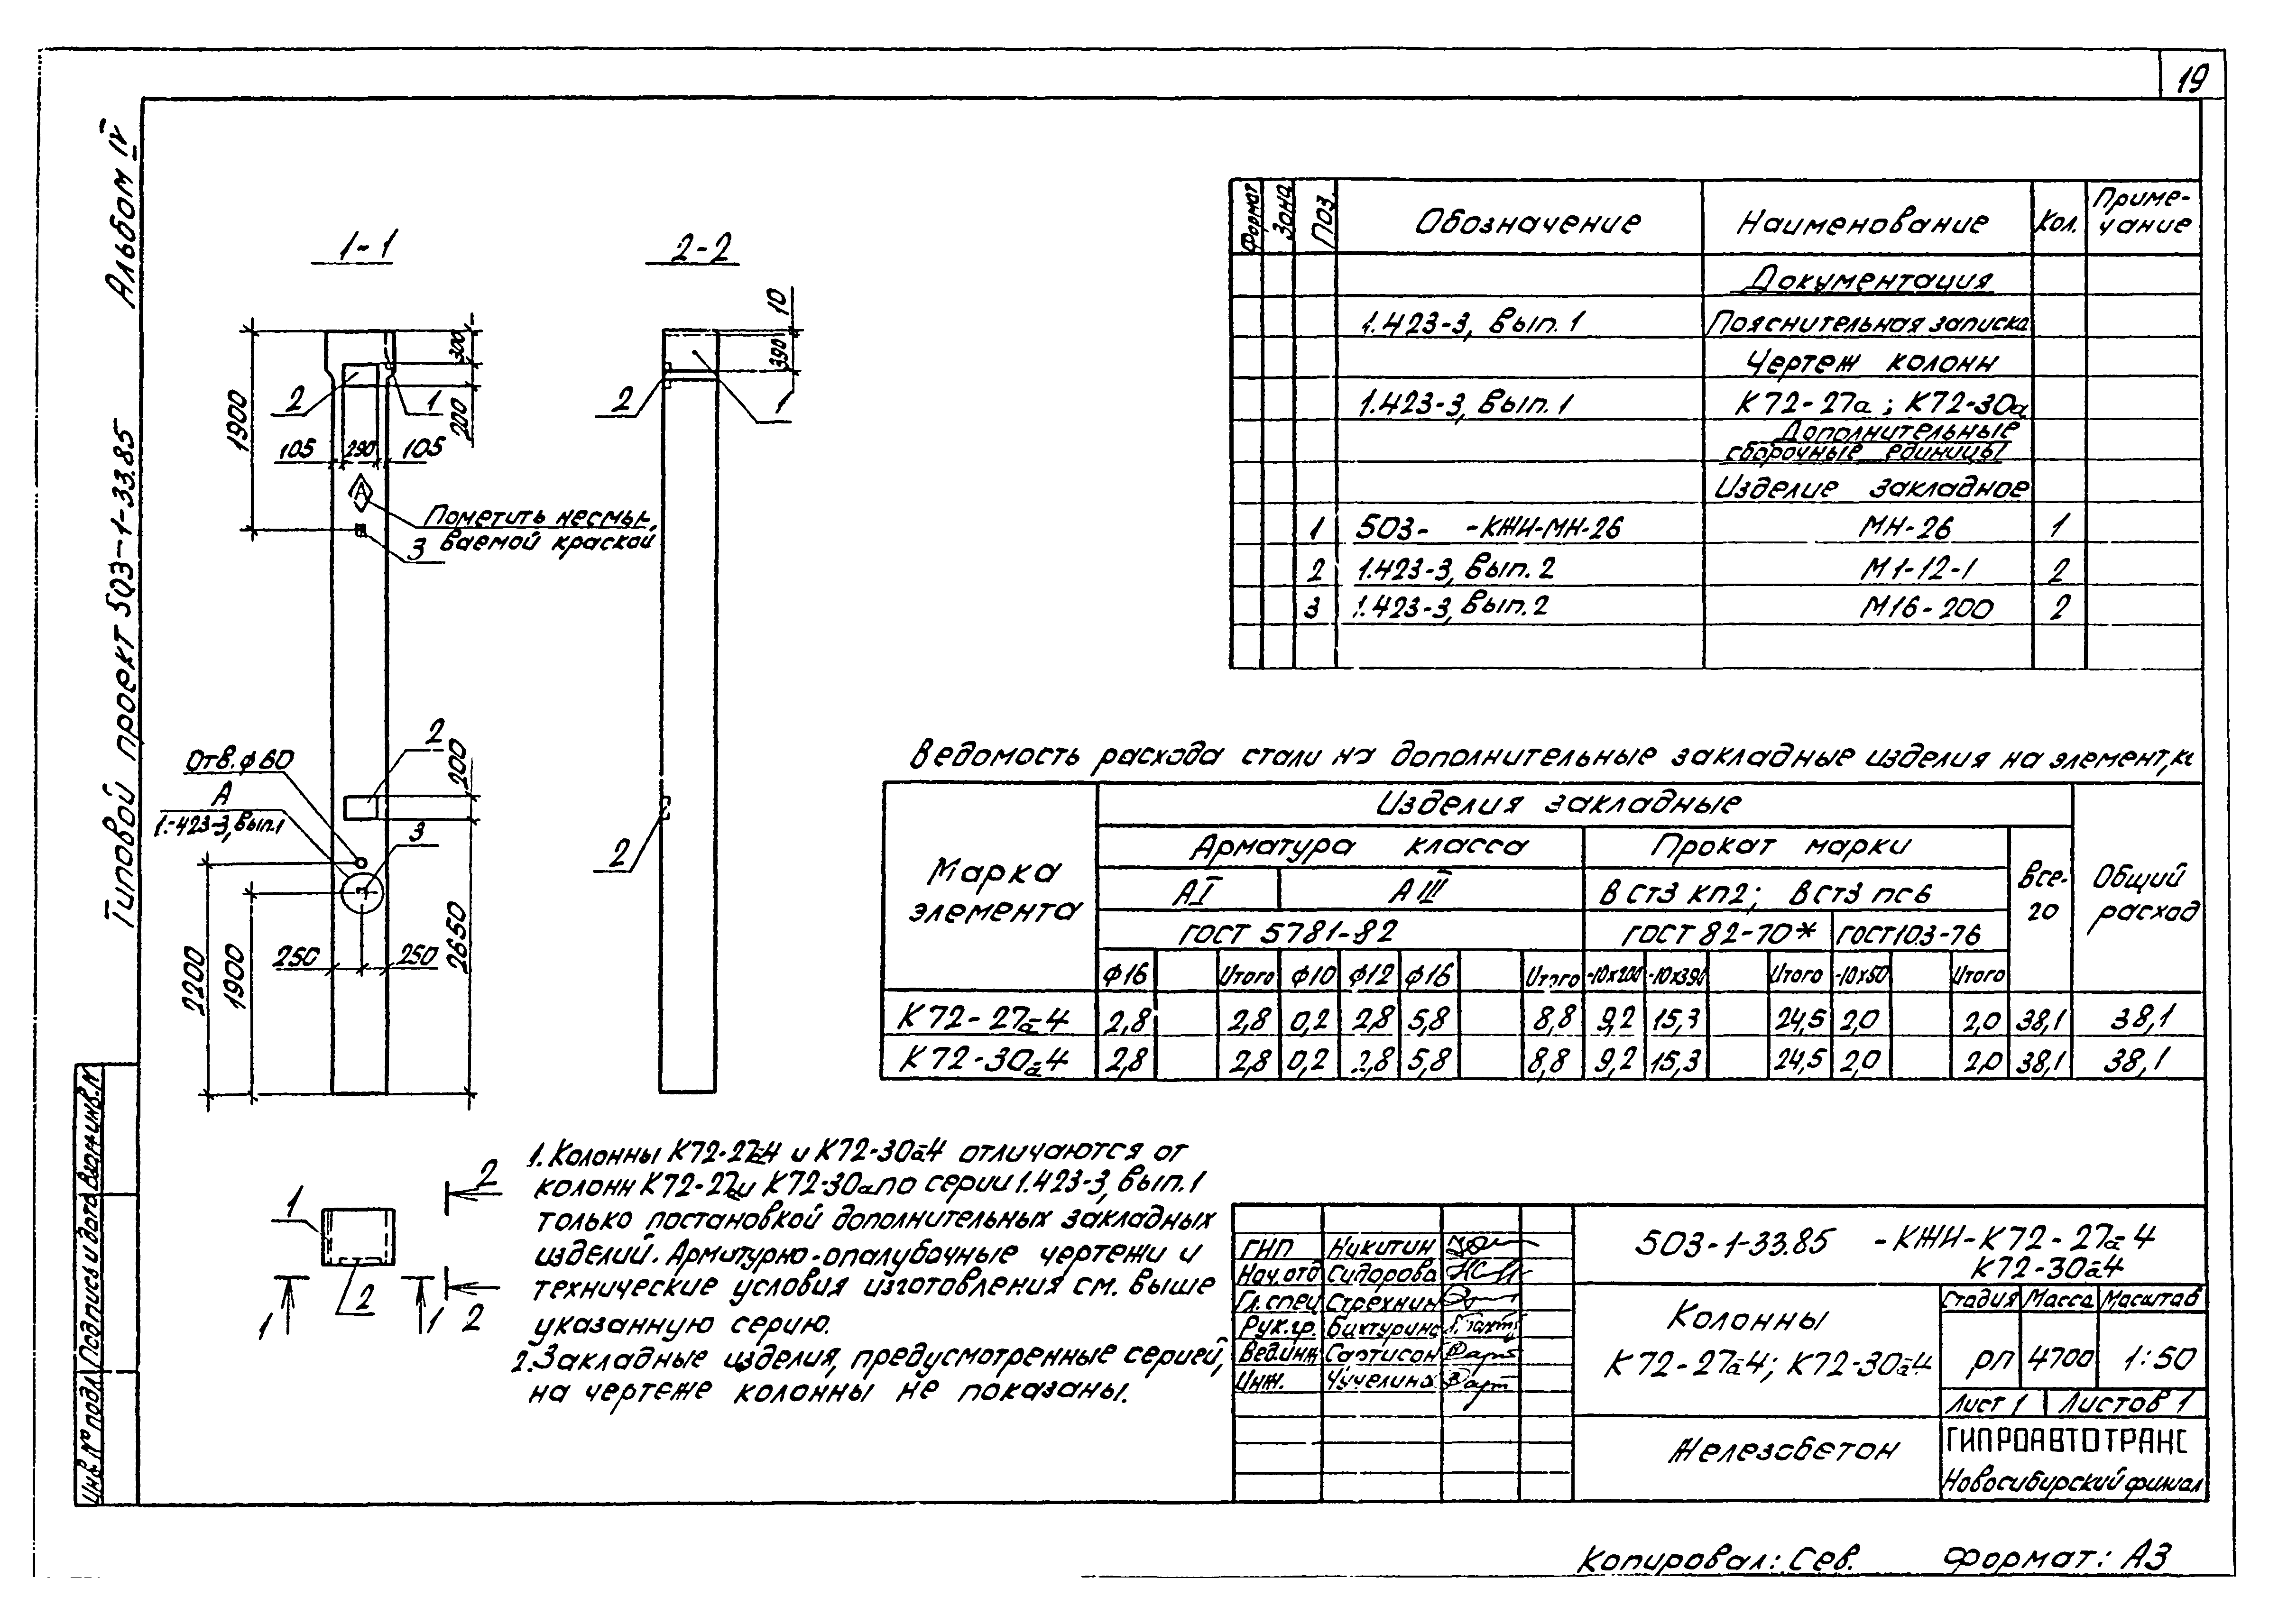 19
Альбом IV
Типовой проект 503-1-33.85
1-1
2-2
1900
2
1
300
200
105 290 105
А
Пометить несмы-
ваемой краской
3
10
390
2
1
Отв. ф60
А
1.-423-3, вып.1
2
200
3
2
250 250
2200
1900
2650
1
2
2
2
1
1
Формат Зона Поз. Обозначение Наименование Кол. Приме-
чание
Документация
1.423-3, вып. 1 Пояснительная записка
Чертеж колонн
1.423-3, вып. 1 К72-27а; К72-30а
Дополнительные
сборочные единицы
Изделие закладное
1 503- -КЖИ-МН-26 МН-26 1
2 1.423-3, вып. 2 М1-12-1 2
3 1.423-3, вып. 2 М16-200 2
Ведомость расхода стали на дополнительные закладные изделия на элемент, кг
Марка
элемента
Изделия закладные
Общий
расход
Арматура класса Прокат марки Все-
го
АI АIII ВСт3кп2; ВСт3пс6
ГОСТ 5781-82 ГОСТ 82-70* ГОСТ 103-76
ф16 Итого ф10 ф12 ф16 Итого -10х200 -10х390 Итого -10х50 Итого
К72-27а-4 2,8 2,8 0,2 2,8 5,8 8,8 9,2 15,3 24,5 2,0 2,0 38,1 38,1
К72-30а-4 2,8 2,8 0,2 2,8 5,8 8,8 9,2 15,3 24,5 2,0 2,0 38,1 38,1
1. Колонны К72-27а-4 и К72-30а-4 отличаются от
колонн К72-27а и К72-30а по серии 1.423-3, вып. 1
только постановкой дополнительных закладных
изделий. Арматурно-опалубочные чертежи и
технические условия изготовления см. выше
указанную серию.
2. Закладные изделия, предусмотренные серией,
на чертеже колонны не показаны.
503-1-33.85 -КЖИ-К72-27а-4
К72-30а-4
ГИП Никитин
Нач.отд Сидорова
Гл.спец Стрехнин
Рук.гр. Бахтурина
Вед.инж Сартисон
Инж. Чучелина
Колонны
К72-27а-4; К72-30а-4
Стадия Масса Масштаб
РП 4700 1:50
Лист 1 Листов 1
Железобетон
ГИПРОАВТОТРАНС
Новосибирский филиал
Инв.№ подл. Подпись и дата Взам.инв.N
Копировал: Сев. Формат: А3